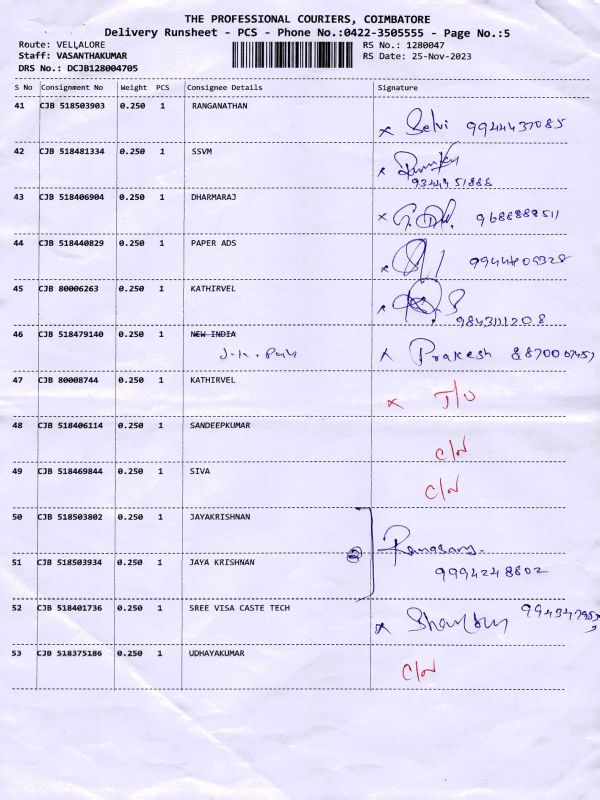 THE PROFESSIONAL COURIERS, COIMBATORE
Delivery Runsheet - PCS - Phone No.:0422-3505555 - Page No.:5
Route: VELLALORE RS No.: 1280047
Staff: VASANTHAKUMAR RS Date: 25-Nov-2023
DRS No.: DCJB128004705
S No Consignment No Weight PCS Consignee Details Signature
41 CJB 518503903 0.250 1 RANGANATHAN
x Selvi 9944437085
42 CJB 518481334 0.250 1 SSVM
x
9344451888
43 CJB 518406904 0.250 1 DHARMARAJ
x 9688888511
44 CJB 518440829 0.250 1 PAPER ADS
x 9944409328
45 CJB 80006263 0.250 1 KATHIRVEL
x
9843111208
46 CJB 518479140 0.250 1 NEW INDIA
x Prakesh
47 CJB 80008744 0.250 1 KATHIRVEL
x
48 CJB 518406114 0.250 1 SANDEEPKUMAR
C/N
49 CJB 518469844 0.250 1 SIVA
C/N
50 CJB 518503802 0.250 1 JAYAKRISHNAN
51 CJB 518503934 0.250 1 JAYA KRISHNAN
Rangasamy.
9994248802
52 CJB 518401736 0.250 1 SREE VISA CASTE TECH
x
53 CJB 518375186 0.250 1 UDHAYAKUMAR
C/N